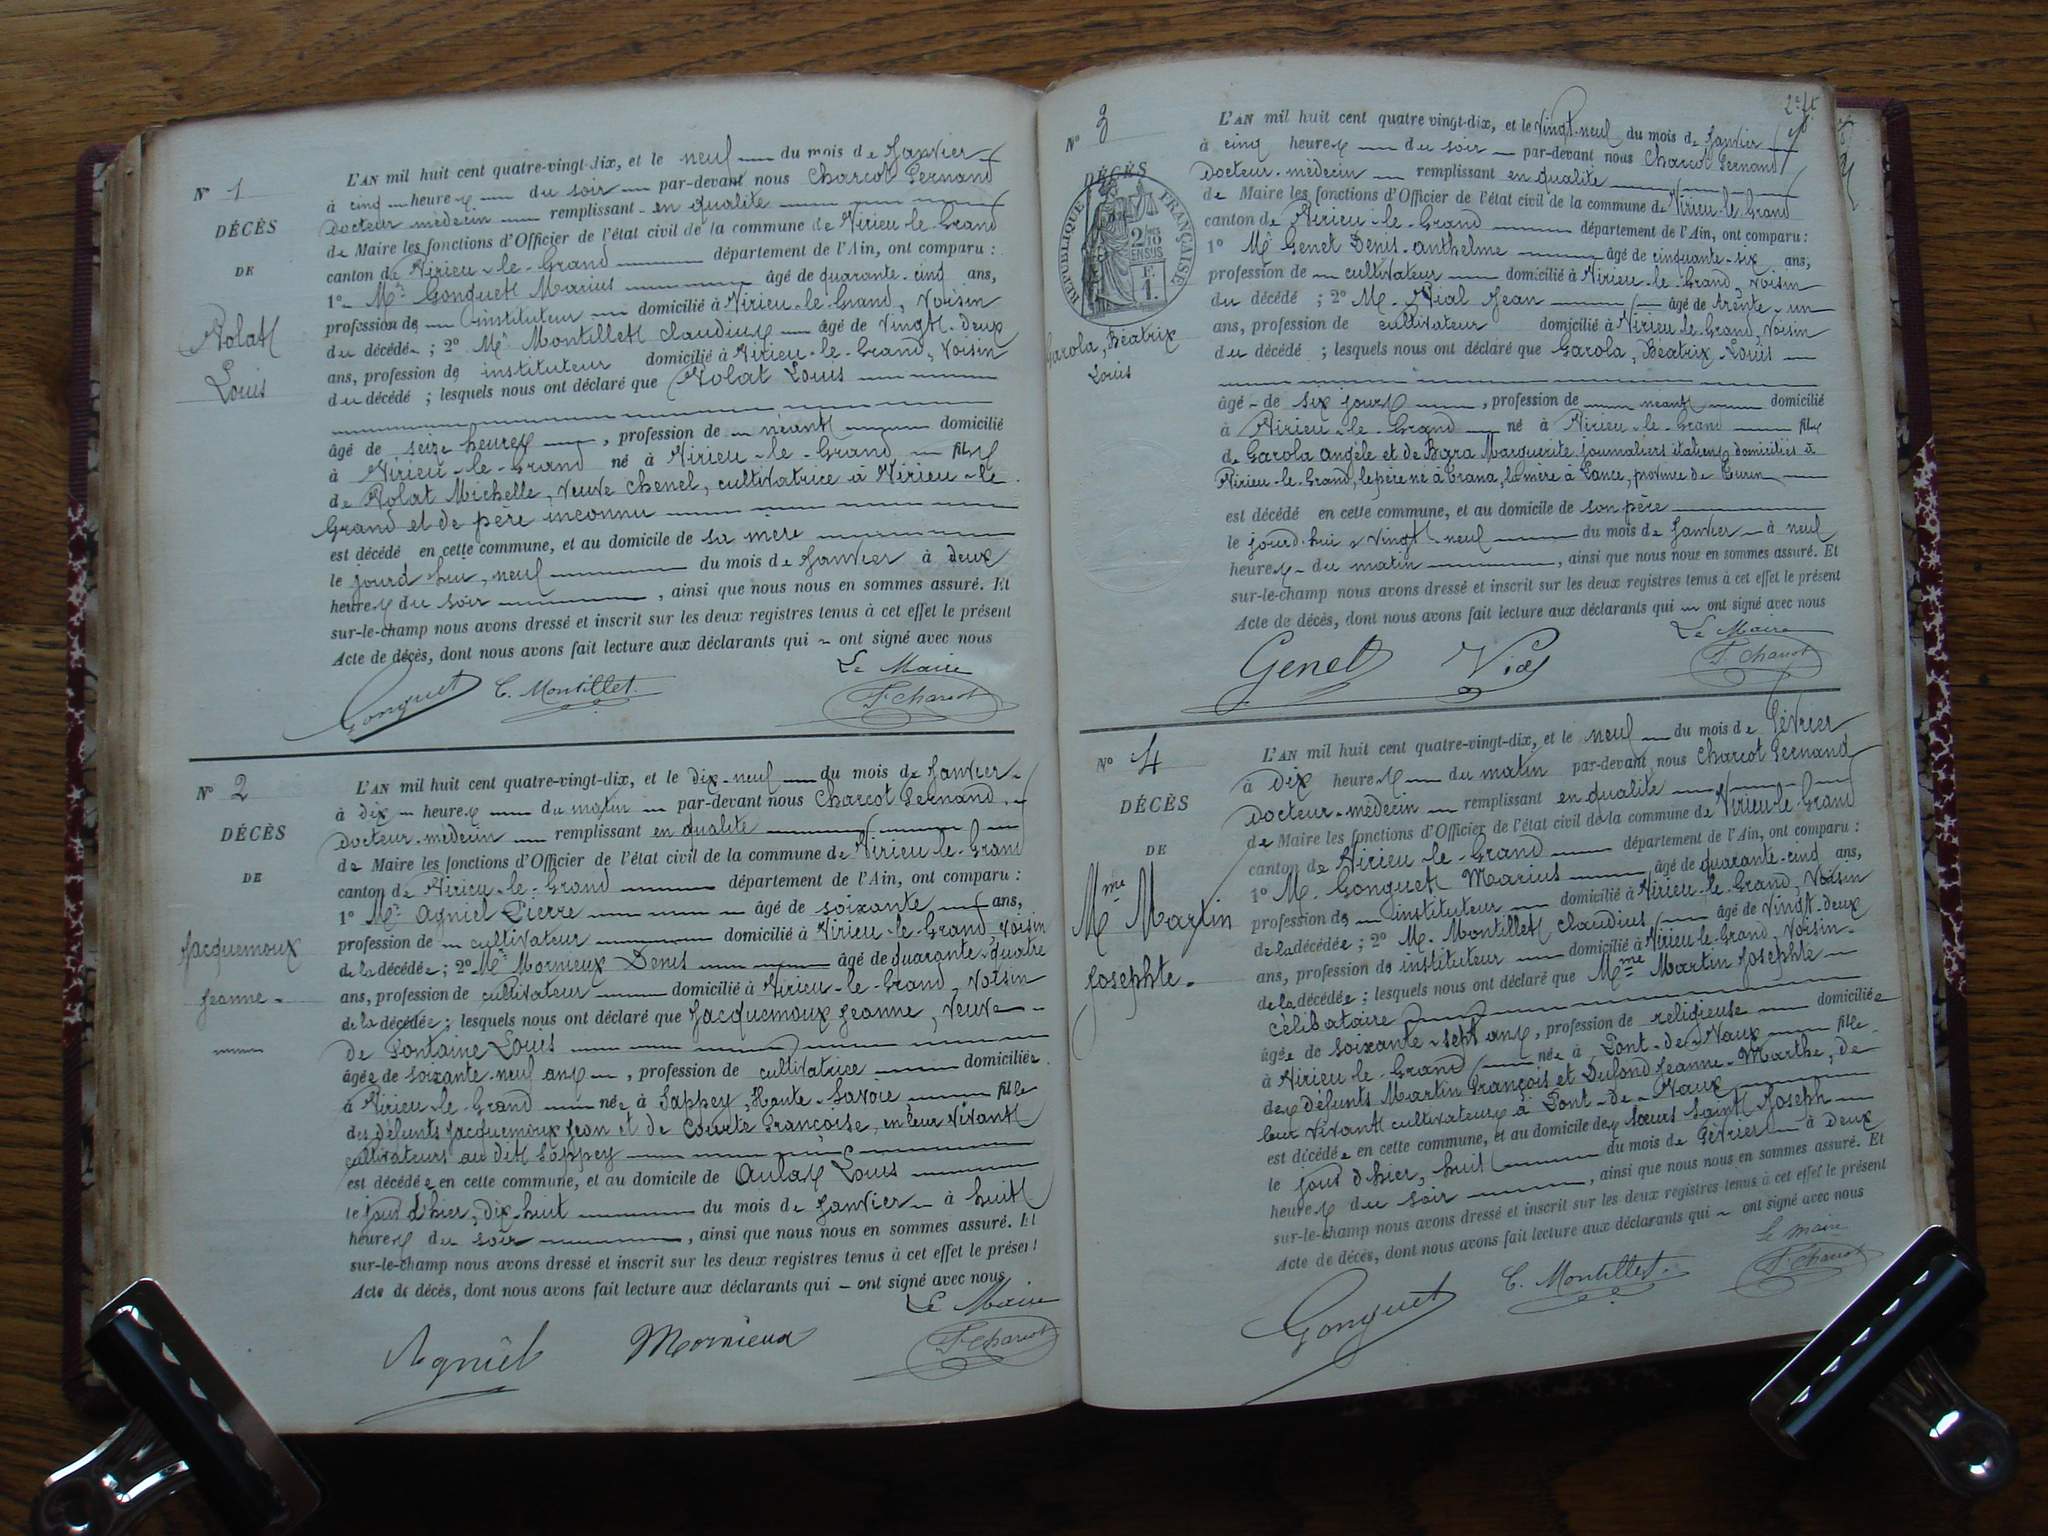 N° 1
DÉCÈS
DE
Rolat
Louis
L'AN mil huit cent quatre-vingt-dix, et le neuf du mois de Janvier
à cinq heures du soir par-devant nous Charcot Fernand
Docteur médecin remplissant en qualité
de Maire les fonctions d'Officier de l'état civil de la commune de Virieu-le-Grand
canton de Virieu-le-Grand département de l'Ain, ont comparu :
1° Mr Gonguet Marius âgé de quarante-cinq ans,
profession de instituteur domicilié à Virieu-le-Grand, Voisin
du décédé ; 2° Mr Montillet Claudius âgé de Vingt-deux
ans, profession de instituteur domicilié à Virieu-le-Grand, Voisin
du décédé ; lesquels nous ont déclaré que Rolat Louis
âgé de seize heures, profession de néant domicilié
à Virieu-le-Grand né à Virieu-le-Grand fils
de Rolat Michelle, Veuve Chenel, cultivatrice à Virieu-le-
Grand et de père inconnu
est décédé en cette commune, et au domicile de sa mère
le jourd'hui, neuf du mois de Janvier à deux
heures du soir, ainsi que nous nous en sommes assuré. Et
sur-le-champ nous avons dressé et inscrit sur les deux registres tenus à cet effet le présent
Acte de décès, dont nous avons fait lecture aux déclarants qui ont signé avec nous
Le Maire
Gonguet C. Montillet F. Charcot
N° 2
DÉCÈS
DE
Jacquemoux
Jeanne
L'AN mil huit cent quatre-vingt-dix, et le dix-neuf du mois de Janvier
à dix heures du matin par-devant nous Charcot Fernand
Docteur-médecin remplissant en qualité
de Maire les fonctions d'Officier de l'état civil de la commune de Virieu-le-Grand
canton de Virieu-le-Grand département de l'Ain, ont comparu :
1° Mr Agniel Pierre âgé de soixante ans,
profession de cultivateur domicilié à Virieu-le-Grand, Voisin
de la décédée ; 2° Mr Mornieux Denis âgé de quarante-quatre
ans, profession de cultivateur domicilié à Virieu-le-Grand, Voisin
de la décédée ; lesquels nous ont déclaré que Jacquemoux Jeanne, Veuve
de Fontaine Louis
âgée de soixante-neuf ans, profession de cultivatrice domiciliée
à Virieu-le-Grand née à Sappey, Haute-Savoie fille
des défunts Jacquemoux Jean et de Courte Françoise, en leur Vivant
cultivateurs au dit Sappey
est décédée en cette commune, et au domicile de Aulas Louis
le jour d'hier, dix-huit du mois de Janvier à huit
heures du soir, ainsi que nous nous en sommes assuré. Et
sur-le-champ nous avons dressé et inscrit sur les deux registres tenus à cet effet le présent
Acte de décès, dont nous avons fait lecture aux déclarants qui ont signé avec nous
Le Maire
Agniel Mornieux F. Charcot
N° 3
DÉCÈS
RÉPUBLIQUE FRANÇAISE
2/10 EN SUS
F. 1.
Garola, Béatrix
Louis
L'AN mil huit cent quatre-vingt-dix, et le Vingt-neuf du mois de Janvier
à cinq heures du soir par-devant nous Charcot Fernand
Docteur-médecin remplissant en qualité
de Maire les fonctions d'Officier de l'état civil de la commune de Virieu-le-Grand
canton de Virieu-le-Grand département de l'Ain, ont comparu :
1° Mr Genet Denis-Anthelme âgé de cinquante-six ans,
profession de cultivateur domicilié à Virieu-le-Grand, Voisin
du décédé ; 2° M. Vial Jean âgé de trente-un
ans, profession de cultivateur domicilié à Virieu-le-Grand, Voisin
du décédé ; lesquels nous ont déclaré que Garola, Béatrix-Louis
âgé de six jours, profession de néant domicilié
à Virieu-le-Grand né à Virieu-le-Grand fils
de Garola Angèle et de Marguerite journaliers italiens domiciliés à
Virieu-le-Grand, le père né à Trana, la mère à Lance, province de Turin
est décédé en cette commune, et au domicile de son père
le jourd'hui Vingt-neuf du mois de Janvier à neuf
heures du matin, ainsi que nous nous en sommes assuré. Et
sur-le-champ nous avons dressé et inscrit sur les deux registres tenus à cet effet le présent
Acte de décès, dont nous avons fait lecture aux déclarants qui ont signé avec nous
Le Maire
Genet Vial F. Charcot
N° 4
DÉCÈS
DE
Mme Martin
Josephte
L'AN mil huit cent quatre-vingt-dix, et le neuf du mois de Février
à Dix heures du matin par-devant nous Charcot Fernand
Docteur-médecin remplissant en qualité
de Maire les fonctions d'Officier de l'état civil de la commune de Virieu-le-Grand
canton de Virieu-le-Grand département de l'Ain, ont comparu :
1° M. Gonguet Marius âgé de quarante-cinq ans,
profession de instituteur domicilié à Virieu-le-Grand, Voisin
de la décédée ; 2° M. Montillet Claudius âgé de Vingt-deux
ans, profession de instituteur domicilié à Virieu-le-Grand, Voisin
de la décédée ; lesquels nous ont déclaré que Mme Martin Josephte
Célibataire
âgée de soixante-sept ans, profession de religieuse domiciliée
à Virieu-le-Grand née à Pont-de-Vaux fille
des défunts Martin François et Dufond Jeanne-Marthe, de
leur Vivant cultivateurs à Pont-de-Vaux
est décédée en cette commune, et au domicile des sœurs Saint Joseph
le jour d'hier, huit du mois de Février à deux
heures du soir, ainsi que nous nous en sommes assuré. Et
sur-le-champ nous avons dressé et inscrit sur les deux registres tenus à cet effet le présent
Acte de décès, dont nous avons fait lecture aux déclarants qui ont signé avec nous
Le Maire
Gonguet C. Montillet F. Charcot